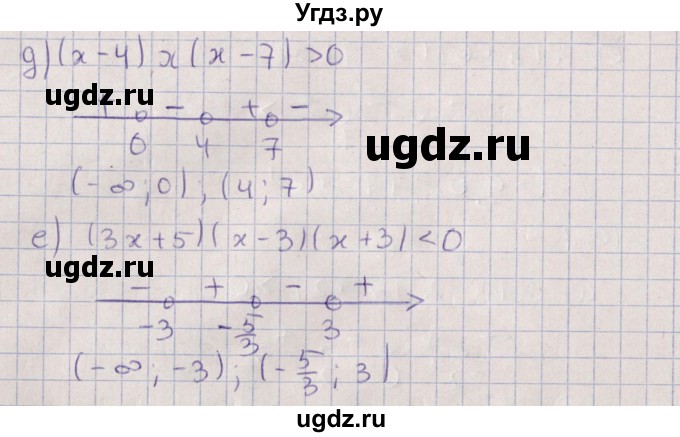 Угдз.ру
д) (x-4) x (x-7) >0
+ - + -
0 4 7
(-∞; 0); (4; 7)
е) (3x+5)(x-3)(x+3) <0
- + - +
-3 -5/3 3
(-∞; -3); (-5/3; 3)
ugdz.ru
ugdz.ru
ugdz.ru
ugdz.ru
ugdz.ru
ugdz.ru
ugdz.ru